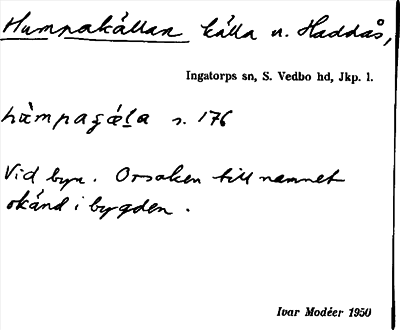 Humpakällan källa n. Haddås,
Ingatorps sn, S. Vedbo hd, Jkp. l.
s. 176
Vid byn. Orsaken till namnet
okänd i bygden.
Ivar Modéer 1950